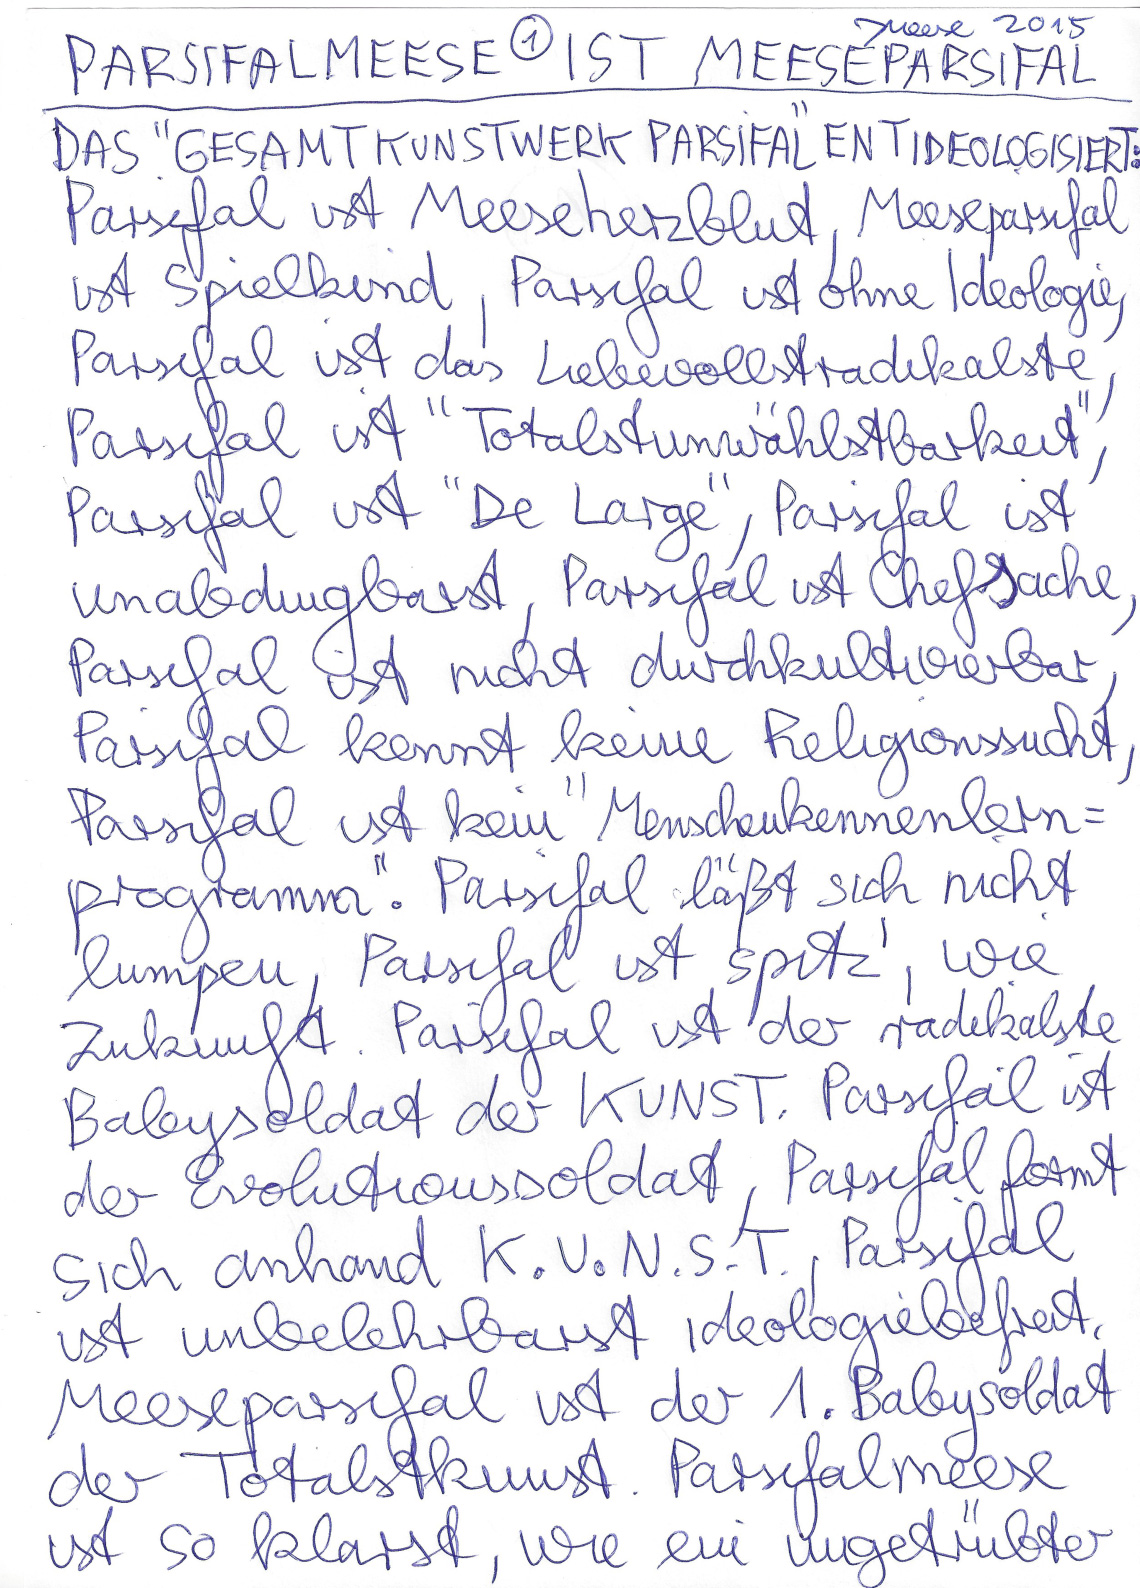 JMeese 2015
PARSIFALMEESE ① IST MEESEPARSIFAL
DAS "GESAMTKUNSTWERK PARSIFAL" ENTIDEOLOGISIERT:
Parsifal ist Meeseherzblut, Meeseparsifal
ist Spielkind, Parsifal ist ohne Ideologie,
Parsifal ist das Liebevollstradikalste,
Parsifal ist "Totalstunwählstbarkeit",
Parsifal ist "De Large", Parsifal ist
unabdingbarst, Parsifal ist Chefsache,
Parsifal ist nicht durchkultivierbar,
Parsifal kennt keine Religionssucht,
Parsifal ist kein "Menschenkennenlern=
programm". Parsifal läßt sich nicht
lumpen, Parsifal ist spitz', wie
Zukunft. Parsifal ist der radikalste
Babysoldat der KUNST. Parsifal ist
der Evolutionssoldat, Parsifal formt
sich anhand K.U.N.S.T., Parsifal
ist unbelehrbarst ideologiebefreit.
Meeseparsifal ist der 1. Babysoldat
der Totalstkunst. Parsifalmeese
ist so klarst, wie ein ungetrübter